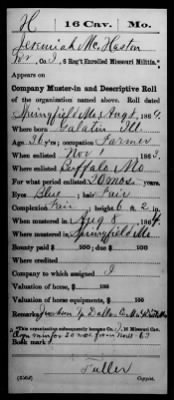 H 16 Cav. Mo.
Jeremiah Mc Haston
Pvt, Co. I, 6 Reg't Enrolled Missouri Militia.*
Appears on
Company Muster-in and Descriptive Roll
of the organization named above. Roll dated
Springfield Mo Aug 8, 1864.
Where born Galatin Ill
Age 26 y'rs; occupation Farmer
When enlisted Nov 1, 1863.
Where enlisted Buffalo Mo
For what period enlisted 20 mos.
Eyes Blue; hair Fair
Complexion Fair; height 6 ft. 2 in.
When mustered in Aug 8, 1864.
Where mustered in Springfield Mo
Bounty paid $ 100; due $ 100
Where credited
Company to which assigned I
Valuation of horse, $ 100
Valuation of horse equipments, $ 100
Remarks: Dallas Co. Mo
*This organization subsequently became Co. 16 Missouri Cav.
for 20 mos from Nov 1 63
Book mark:
Fuller
Copyist.